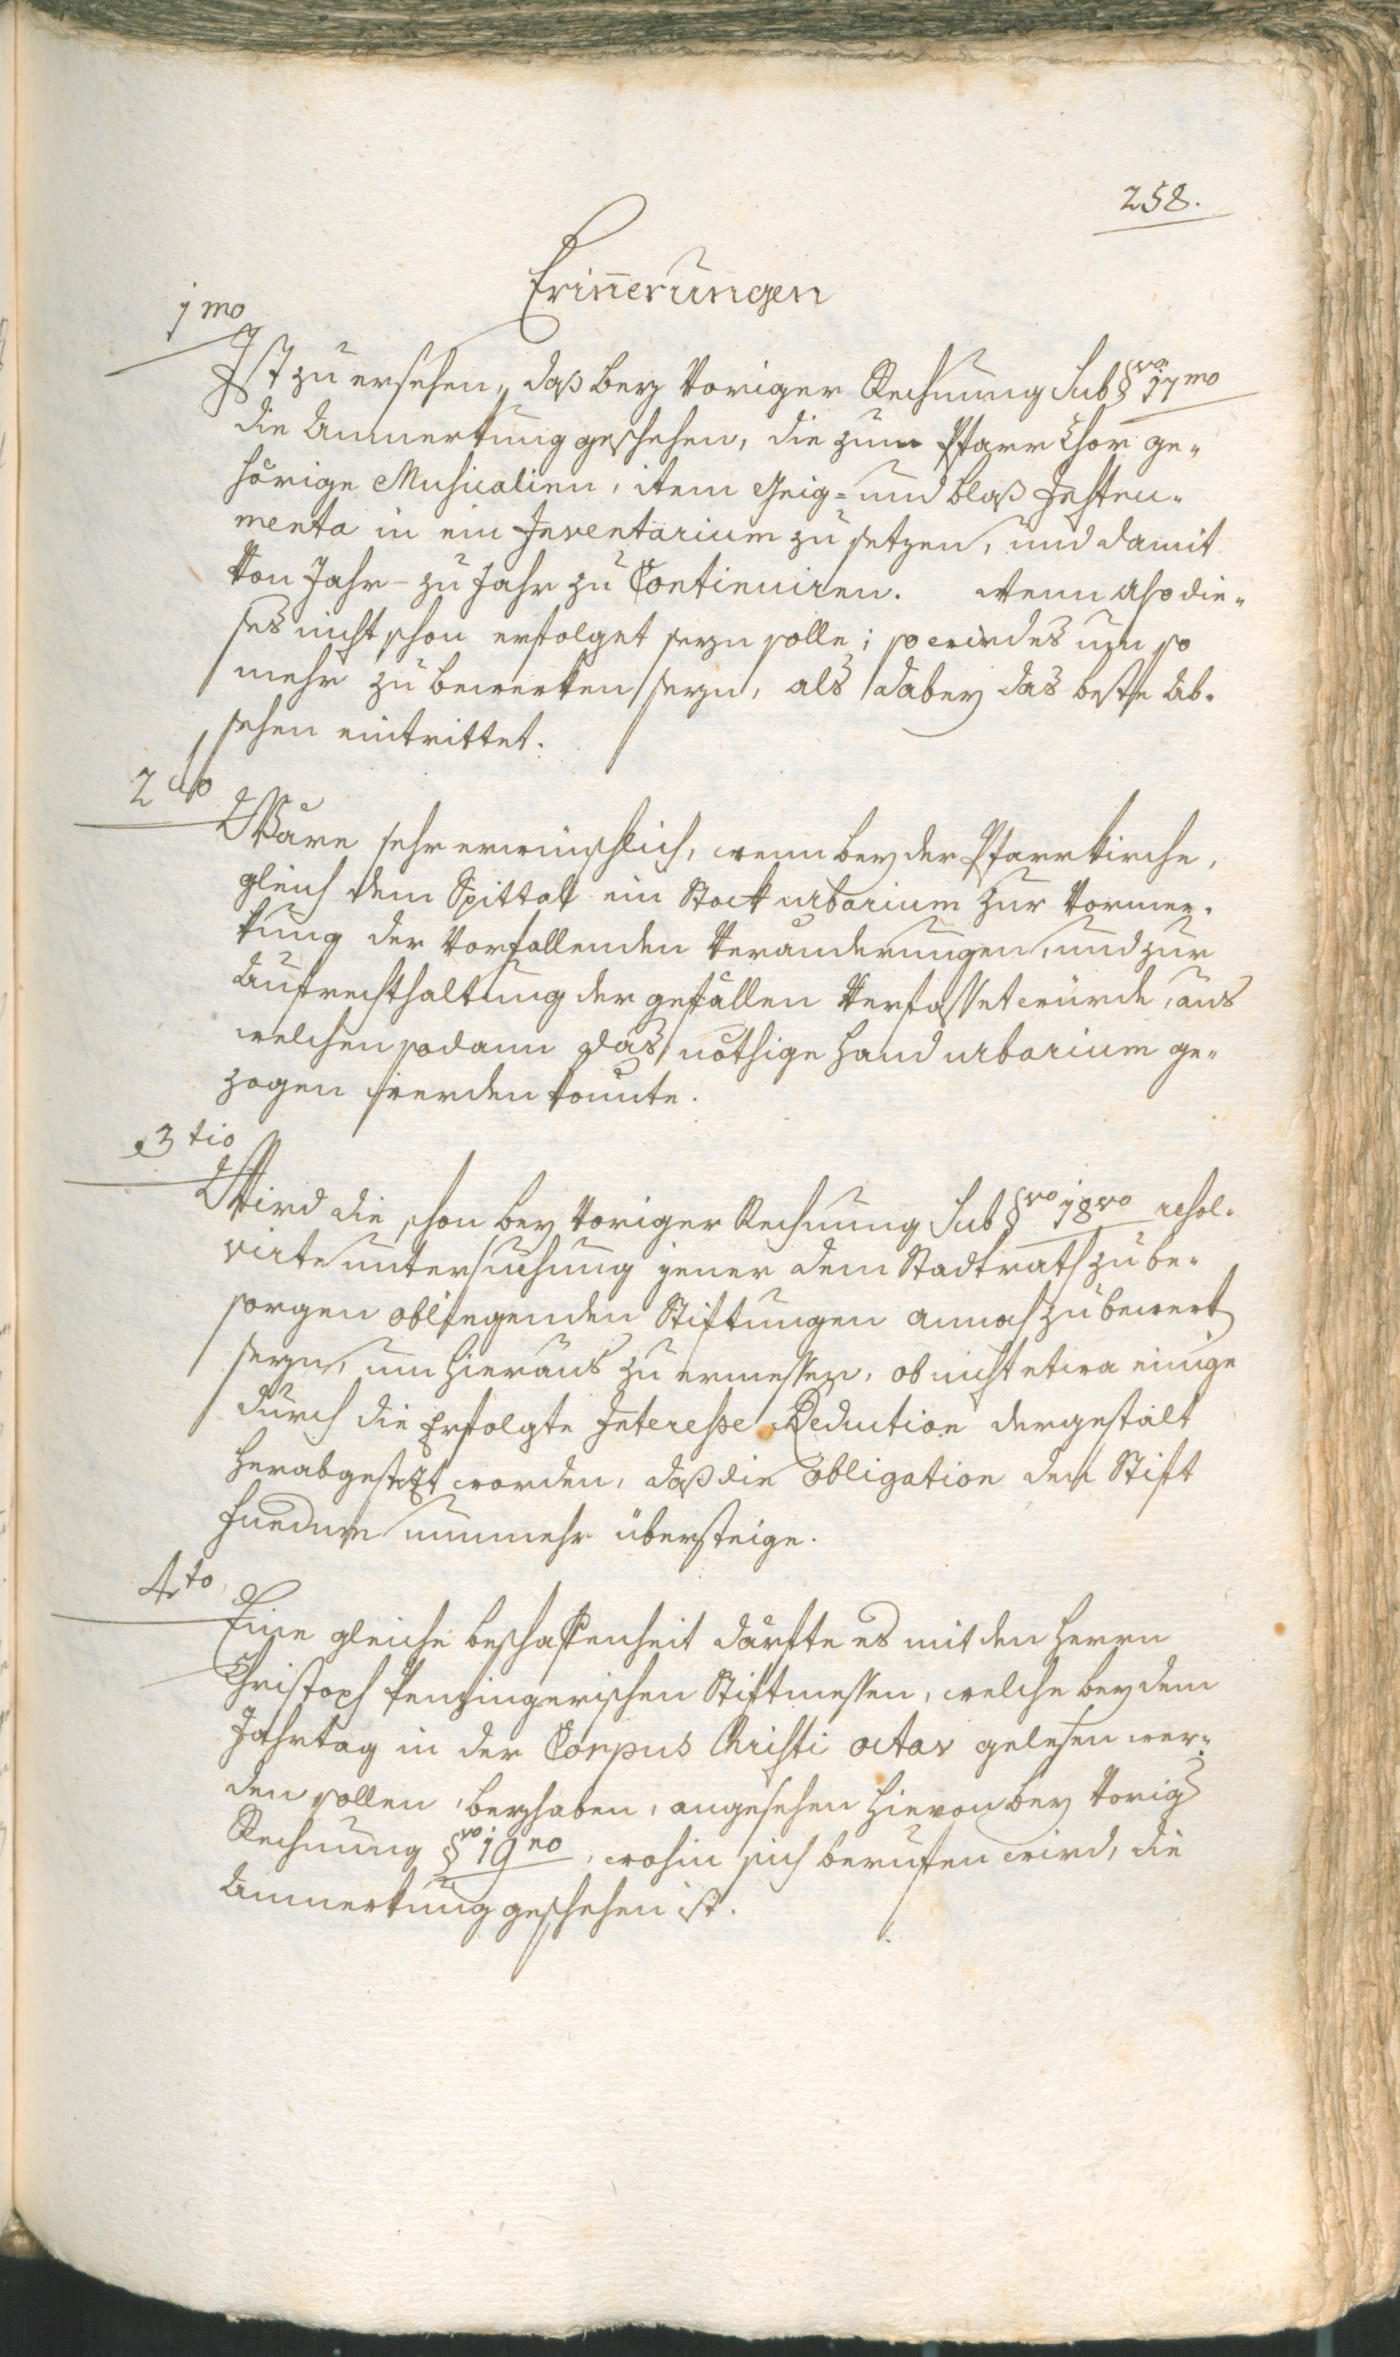 258.
Erin̄erungen
1mo
Ist zu ersehen, daß bey voriger Rechnung Sub §vo 17mo
die Anmerkung geschehen, die zum Pfarr Chor ge-
hörige Musicalien, item Geig- und blaß Instru-
menta in ein Inventarium zu setzen, und damit
von Jahr- zu Jahr zu Continuiren. Wenn also die-
ses nicht schon erfolget seyn solle; so wird es um so
mehr zu bewerken seyn, als dabey das beste Ab-
sehen eintrittet.
2do
Wäre sehr erwünschlich, wenn bey der Pfarrkirche,
gleich dem Spittall ein Stock urbarium zur Vormer-
kung der vorfallenden Veränderungen, und zur
Aufrechthaltung der gefällen verfasset würde, aus
welchen sodann das nöthige Hand urbarium ge-
zogen werden könnte.
3tio
Wird die schon bey voriger Rechnung Sub §vo 18vo resol-
virte untersuchung jener dem Stadtrath zu be-
sorgen obliegenden Stiftungen annoch zu bewerk
seyn, um hieraus zu ermessen, ob nicht etwa einige
durch die Erfolgte Interesse Reduction dergestalt
herabgesetzt worden, daß die obligation den Stift
Fundum nunmehr übersteige.
4to
Eine gleiche beschaffenheit därfte es mit den Herrn
Christoph Penzingerischen Stiftmessen, welche bey dem
Jahrtag in der Corpus Christi octav gelesen wer-
den sollen, beyhaben, angesehen hievon bey vorig
Rechnung §vo 19no, wohin sich berufen wird, die
Anmerkung geschehen ist.